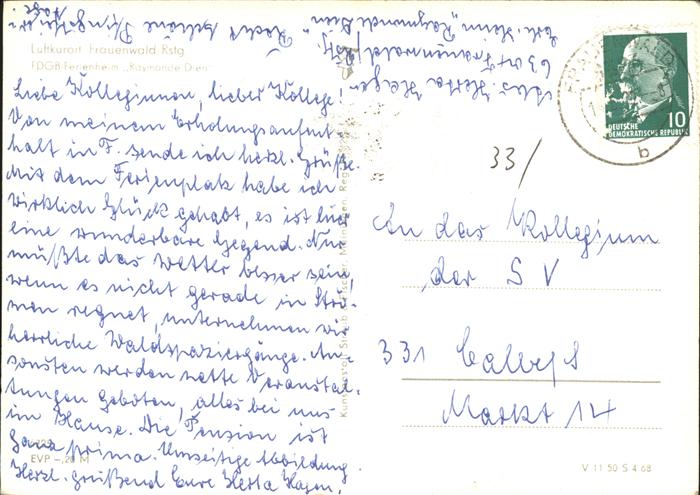 Luftkurort Frauenwald Rstg.
FDGB Ferienheim „Raymonde Dien"
Liebe Kolleginnen, lieber Kollege!
Von meinem Erholungsaufent-
halt in F. sende ich herzl. Grüße.
Mit dem Ferienplatz habe ich
wirklich Glück gehabt, es ist hier
eine wunderbare Gegend. Nur
müßte das Wetter besser sein,
wenn es nicht gerade in Strö-
men regnet, unternehmen wir
herrliche Waldspaziergänge. An-
sonsten werden nette Veranstal-
tungen geboten, alles bei uns
im Hause. Die Pension ist
ganz prima. Umseitige Abbildung.
Herzl. grüßend Eure Herta Hagen,
Recht schöne Pfingst-
tage
Abs. Herta Hagen
Frauenwald/Rstg.
Erh. Heim „Raymonde Dien"
EVP –,20 M
DEUTSCHE
DEMOKRATISCHE REPUBLIK
10
b
33/
An das Kollegium
der SV
331 Calbe/S
Markt 14
V 11 50 S 4 68